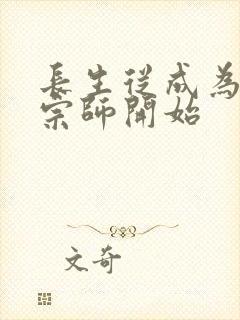 長生從成為
宗師開始
文奇